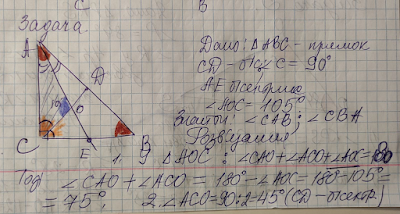 С В
Задача.
А
Дано: △ABC – прямоуг
CD – бис ∠C = 90°
D
AE бисектрис
105
O
∠AOC = 105°
Знайти: ∠CAB; ∠CBA
Розвʼязання
C E B
1. У △AOC: ∠CAO+∠ACO+∠AOC=180
Тоді ∠CAO + ∠ACO = 180° – ∠AOC = 180°–105°=
= 75°, 2. ∠ACO=90:2=45° (CD –бісектр.)